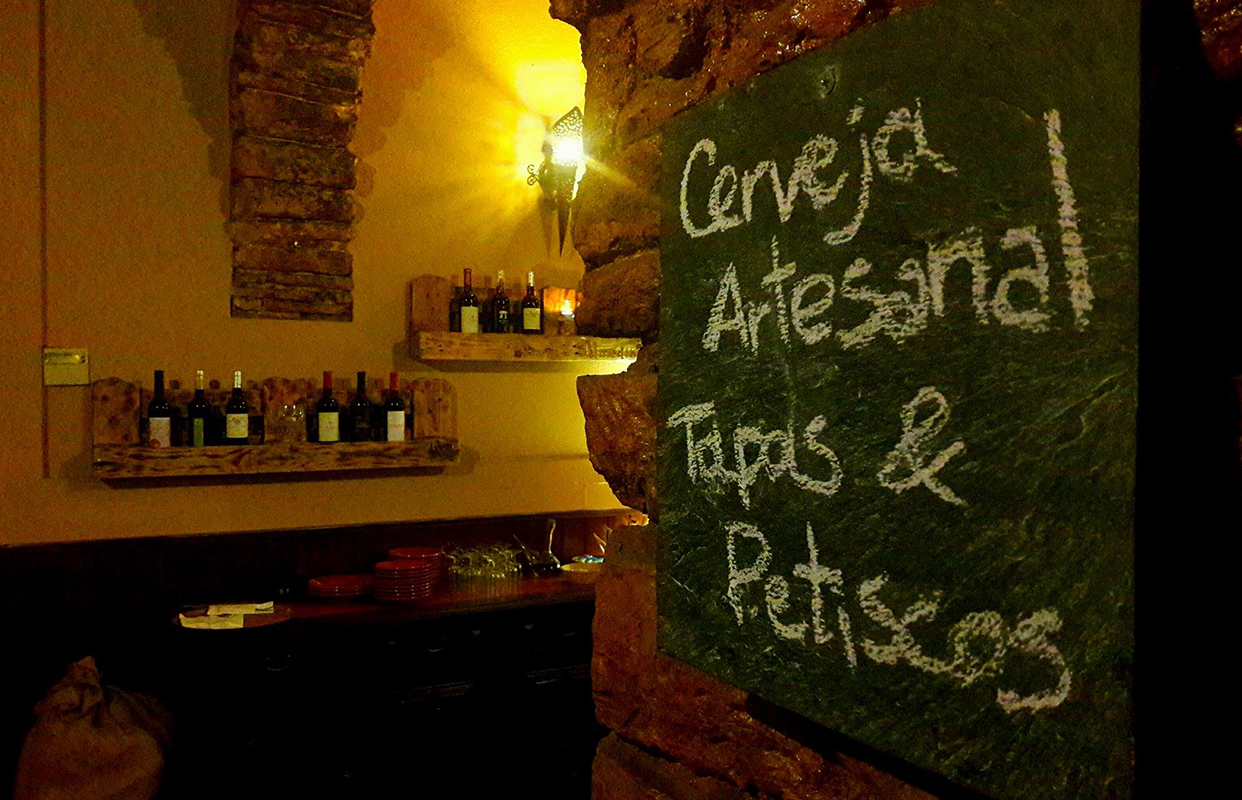 Cerveja
Artesanal
Tapas &
Petiscos